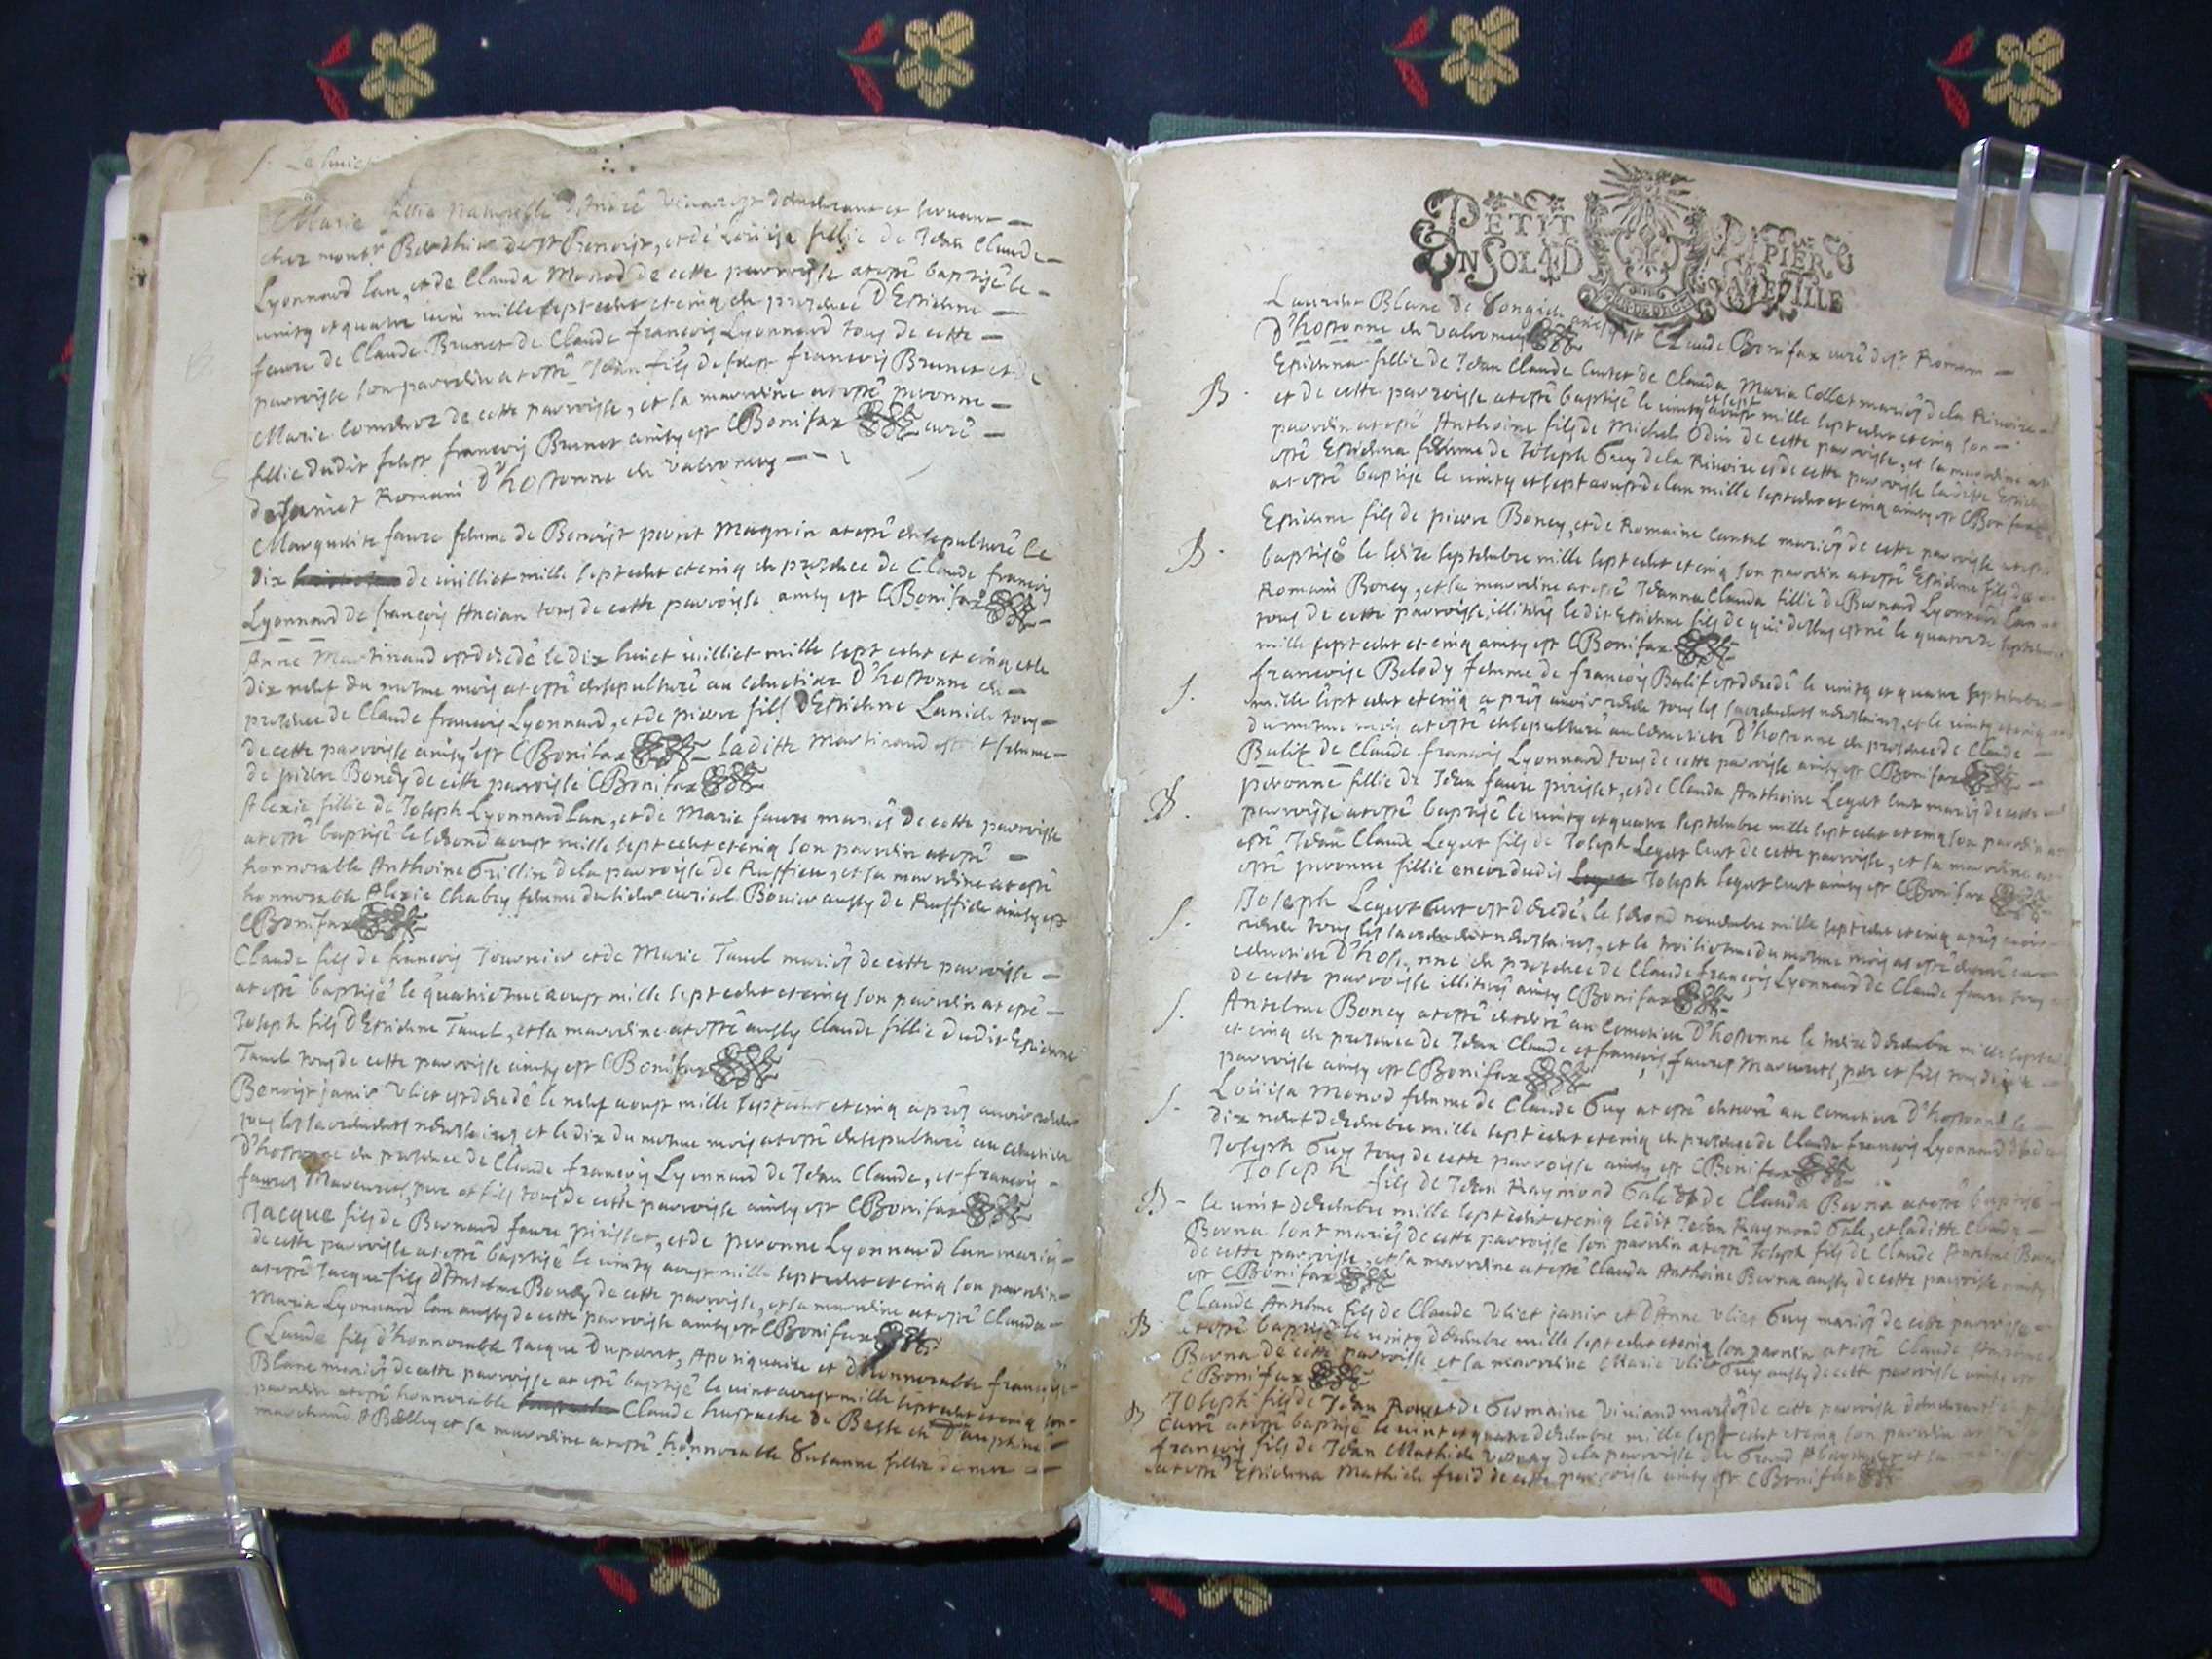 Marie fillie naturelle d'André demeurant et servant
chez monsr Berthier de st Benoist, et de Loüise fillie de Jean Claude
Lyonnard Lan, et de Clauda Monod de cette parroisse at esté baptisé le
vingt et quatre iuin mille sept cent et cinq en presence D'Estienne
faure de Claude Brunet de Claude françois Lyonnard tous de cette
parroisse son parrein at esté Jean fils de feust françois Brunet et de
Marie de cette parroisse, et sa marreine at esté pivonne
fillie dudit feust françois Brunet ainsy est CBonifax curé
de sainct Romain D'hostonne en valromey
Marguerite faure femme de Benoist perret Magnin at esté ensepulturé le
dix de iuilliet mille sept cent et cinq en presence de Claude françois
Lyonnard de françois Ancian tous de cette parroisse ainsy est CBonifax
Anne Martinand est decedé le dix huict iuilliet mille sept cent et cinq et le
dix neuf du mesme mois at esté ensepulturé au cemetiere D'hostonne en
presence de Claude françois Lyonnard, et de pierre fils D'Estienne tous
de cette parroisse ainsy est CBonifax laditte Martinand estoit femme
de pierre Boney de cette parroisse CBonifax
Alexie fillie de Joseph Lyonnard Lan, et de Marie faure mariés de cette parroisse
at esté baptisé le second aoust mille sept cent et cinq son parrein at esté
honnorable Anthoine Grillix de la parroisse de Ruffieu, et sa marreine at esté
honnorable Alexie Chabey femme du sieur curial Bouvier aussy de Ruffieu ainsy est
CBonifax
Claude fils de françois Tournier et de Marie Tanel mariés de cette parroisse
at esté baptisé le quatriesme aoust mille sept cent et cinq son parrein at esté
Joseph fils D'Estienne Tanel, et sa marreine at esté aussy Claude fillie dudit Estienne
Tanel tous de cette parroisse ainsy est CBonifax
Benoist janin Vliet est decedé le neuf aoust mille sept cent et cinq aprés avoir
tous les sacrements necessaires, et le dix du mesme mois at esté ensepulturé au cemetiere
D'hostonne en presence de Claude françois Lyonnard de Jean Claude, et françois
faures Mareurets, pere et fils tous de cette parroisse ainsy est CBonifax
Jacque fils de Bernard faure pirisset, et de pivonne Lyonnard Lan mariés
de cette parroisse at esté baptisé le vingt aoust mille sept cent et cinq son parrein
at esté Jacque fils D'Anselme Boney de cette parroisse, et sa marreine at esté Clauda
Maria Lyonnard Lan aussy de cette parroisse ainsy est CBonifax
Claude fils d'honnorable Jacque Duparet, Apotiquaire et d'honnorable françoise
Blanc mariés de cette parroisse at esté baptisé le vint aoust mille sept cent et cinq son
parrein at esté honnorable Claude hustache de Besse en Dauphine
marchand A Belley et sa marreine at esté honnorable Susanne fillie de mre
PETIT PAPIER
EN SOL4D LA FEILLE
Laurent Blanc de Songieu ainsy est Claude Bonifax curé de st Romain
D'hostonne en valromey
B. Estienna fillie de Jean Claude Curtet de Clauda Maria Collet mariés de la Rivoire
et de cette parroisse at esté baptisé le vingt et sept aoust mille sept cent et cinq son
parrein at esté Anthoine fils de Michel Odin de cette parroisse, et sa marreine at
esté Estienna femme de Joseph Guy de la Rivoire et de cette parroisse laditte
at esté baptisé le vingt et sept aoust de lan mille sept cent et cinq ainsy est CBonifax
B. Estienne fils de pierre Boney, et de Romaine mariés de cette parroisse at esté
baptisé le seize septembre mille sept cent et cinq son parrein at esté Estienne fils de
Romain Boney, et sa marreine at esté Jeanne Clauda fillie de Bernard Lyonnard Lan
tous de cette parroisse, illitirés ledit Estienne fils de qui dessus est né le quatorze septembre
mille sept cent et cinq ainsy est CBonifax
S. françoise Belody femme de françois Balif est decedé le vingt et quatre septembre
mille sept cent et cinq aprés avoir tous les sacrements necessaires, et le vingt et cinq
du mesme mois at esté ensepulturé au cemetiere D'hostonne en presence de Claude
Balif de Claude françois Lyonnard tous de cette parroisse ainsy est CBonifax
B. pivonne fillie de Jean faure pirisset, et de Clauda Anthoine Leget mariés de cette
parroisse at esté baptisé le vingt et quatre septembre mille sept cent et cinq son parrein at
esté Jean Claude Leget fils de Joseph Leget de cette parroisse, et sa marreine at
esté pivonne fillie encor dudit Joseph Leget ainsy est CBonifax
S. Joseph Leget est decedé le second novembre mille sept cent et cinq aprés avoir
tous les sacrements necessaires, et le troisiesme du mesme mois at esté
cemetiere D'hostonne en presence de Claude françois Lyonnard de Claude faure tous
de cette parroisse illitirés ainsy CBonifax
S. Anselme Boney at esté enterré au Cemetiere D'hostonne le treize decembre mille sept cent
et cinq en presence de Jean Claude et françois faures Mareurets, pere et fils tous de
parroisse ainsy est CBonifax
S. Loüisa Monod femme de Claude Guy at esté enterré au Cemetiere D'hostonne le
dix neuf decembre mille sept cent et cinq en presence de Claude françois Lyonnard
Joseph Guy tous de cette parroisse ainsy est CBonifax
B. Joseph fils de Jean Raymond Gale et de Clauda Berna at esté baptisé
le vint decembre mille sept cent et cinq ledit Jean Raymond Gale, et laditte Clauda
Berna sont mariés de cette parroisse son parrein at esté Joseph fils de Claude Anselme Berna
de cette parroisse, et sa marreine at esté Clauda Anthoine Berna aussy de cette parroisse ainsy
est CBonifax
B. Claude Anselme fils de Claude Vliet janin et D'Anne Vliet Guy mariés de cette parroisse
at esté baptisé le vingt decembre mille sept cent et cinq son parrein at esté Claude
Berna de cette parroisse et sa marreine Marie Vliet Guy aussy de cette parroisse ainsy est
CBonifax
B. Joseph fils de Jean et de Germaine Viviand mariés de cette parroisse demeurant
at esté baptisé le vint et quatre decembre mille sept cent et cinq son parrein at esté
françois fils de Jean Mathieu de la parroisse du Grand Abergement et sa
at esté Estienna Mathieu froid de cette parroisse ainsy est CBonifax